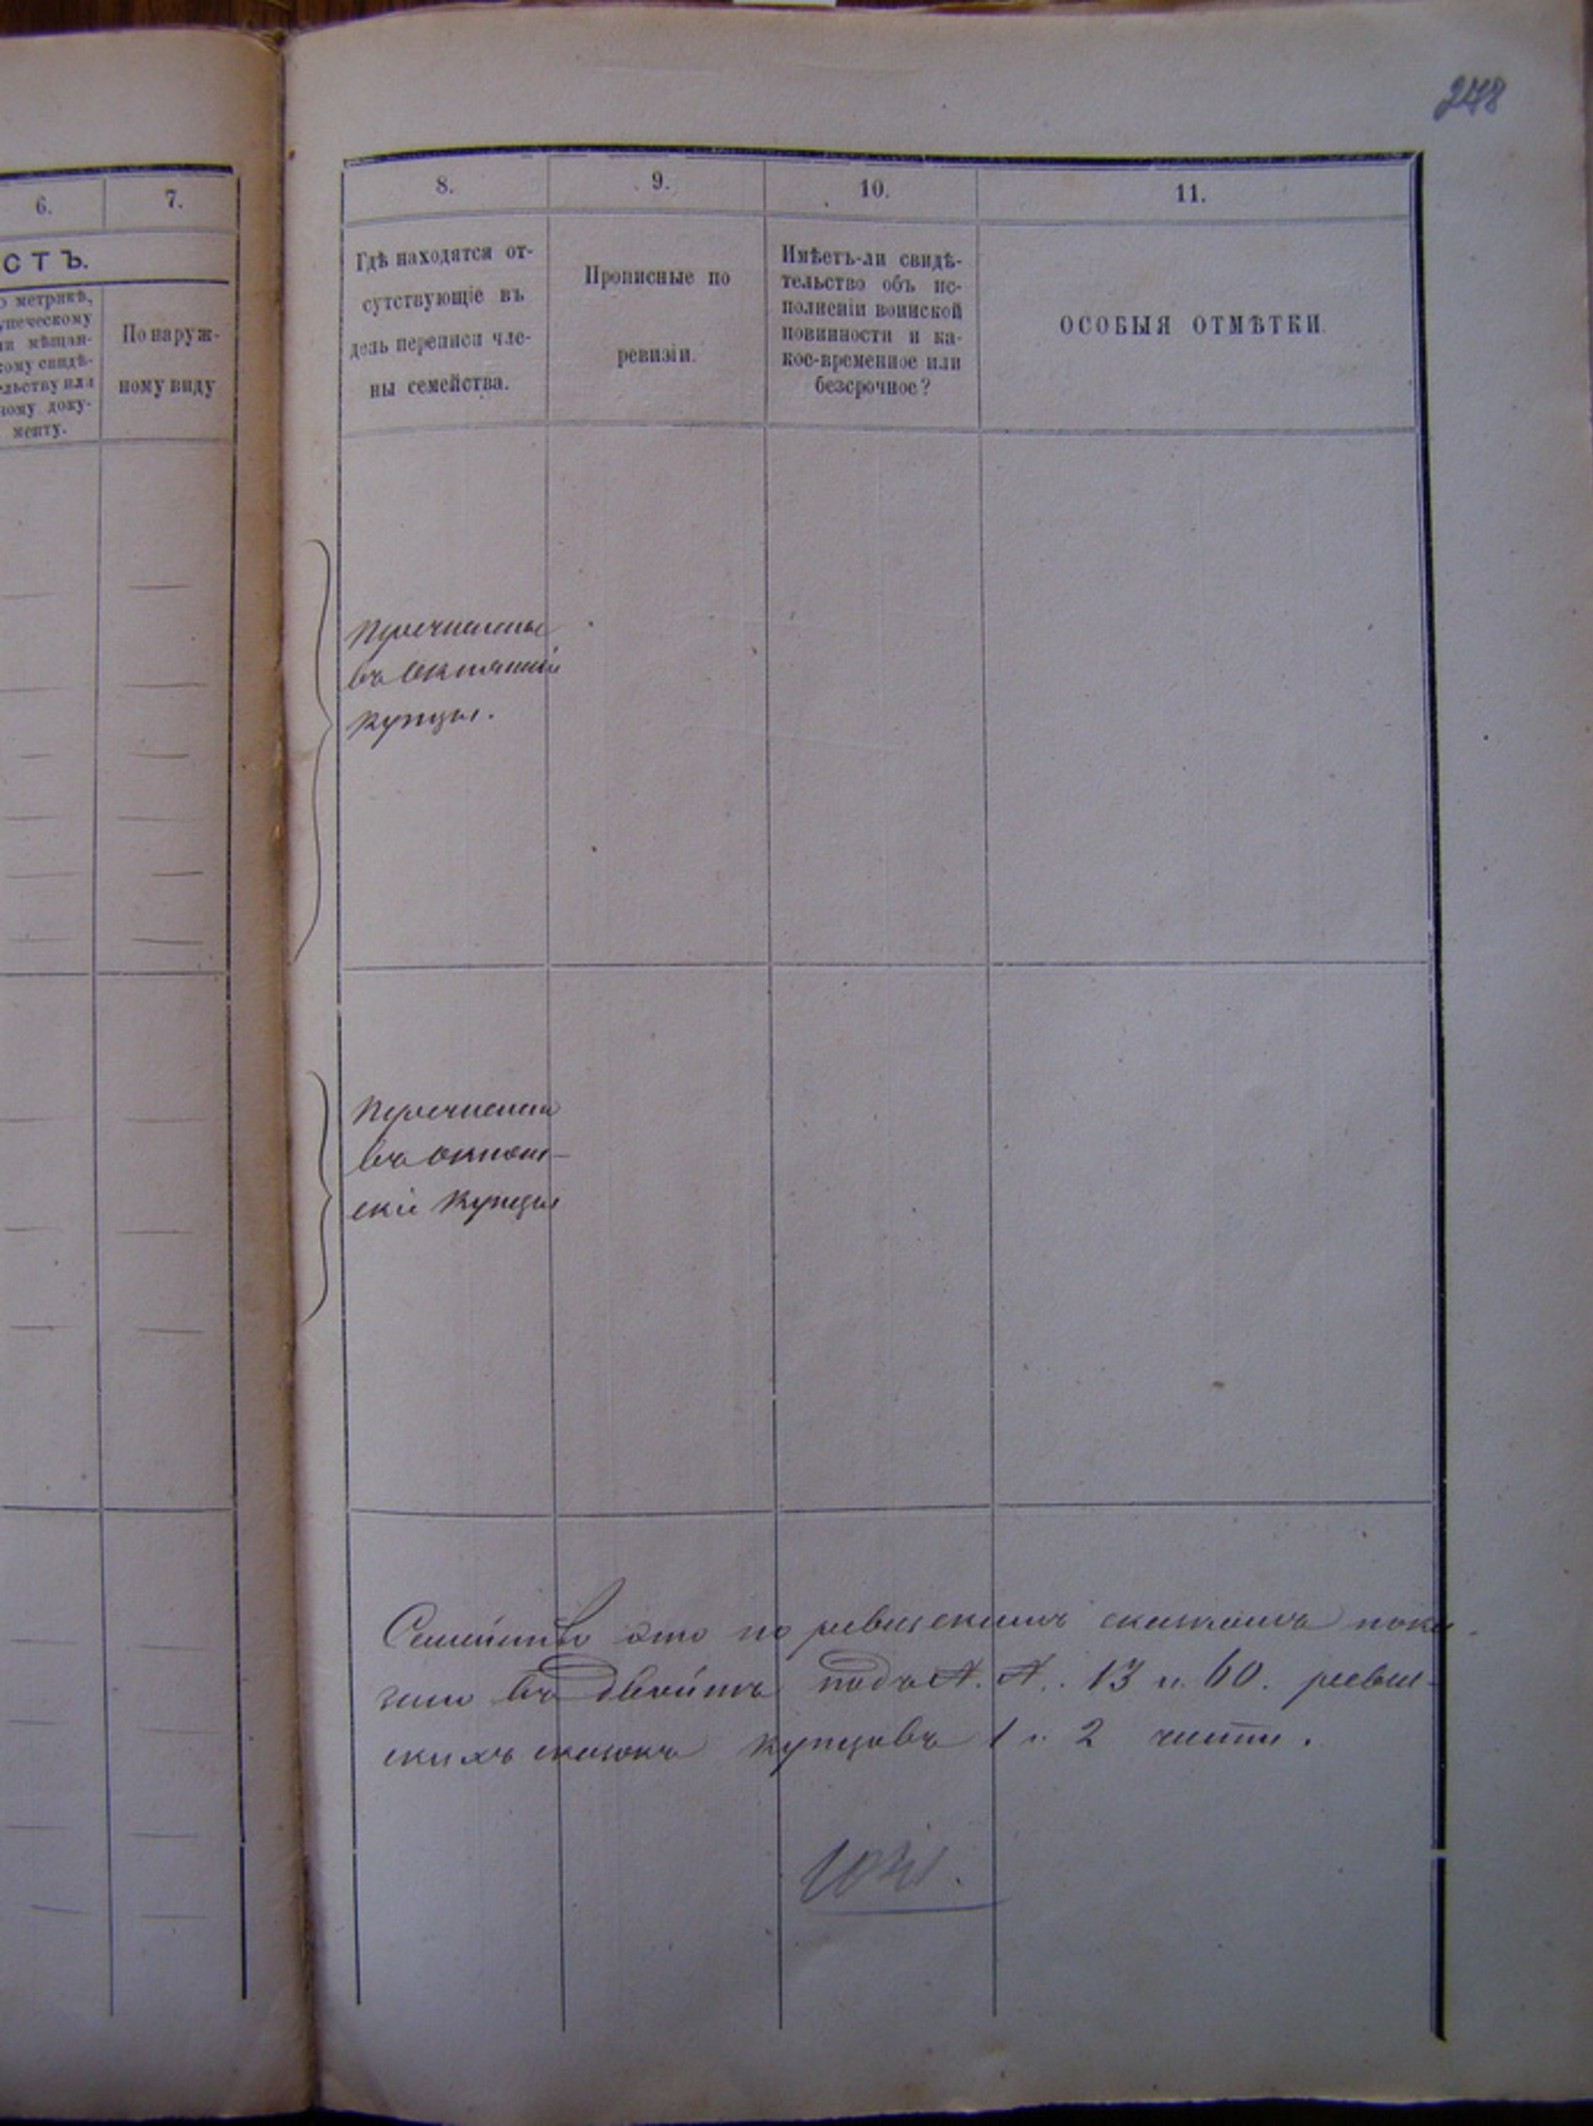 248
6.
7.
СТЪ.
о метрикѣ,
упеческому
ли мѣщан-
кому свидѣ-
ельству или
кому доку-
менту.
По наруж-
ному виду
8.
9.
10.
11.
Гдѣ находятся от-
сутствующіе въ
день переписи чле-
ны семейства.
Прописные по
ревизіи.
Имѣетъ-ли свидѣ-
тельство объ ис-
полненіи воинской
повинности и ка-
кое-временное или
безсрочное?
ОСОБЫЯ ОТМѢТКИ.
Перечислены
въ
купцы.
Перечислены
въ
скіе купцы
Семейство это по ревизскимъ сказкамъ пока-
зано въ двойнѣ подъ №. №. 13 и 60. ревиз-
скихъ сказокъ купцовъ 1 и 2 части.